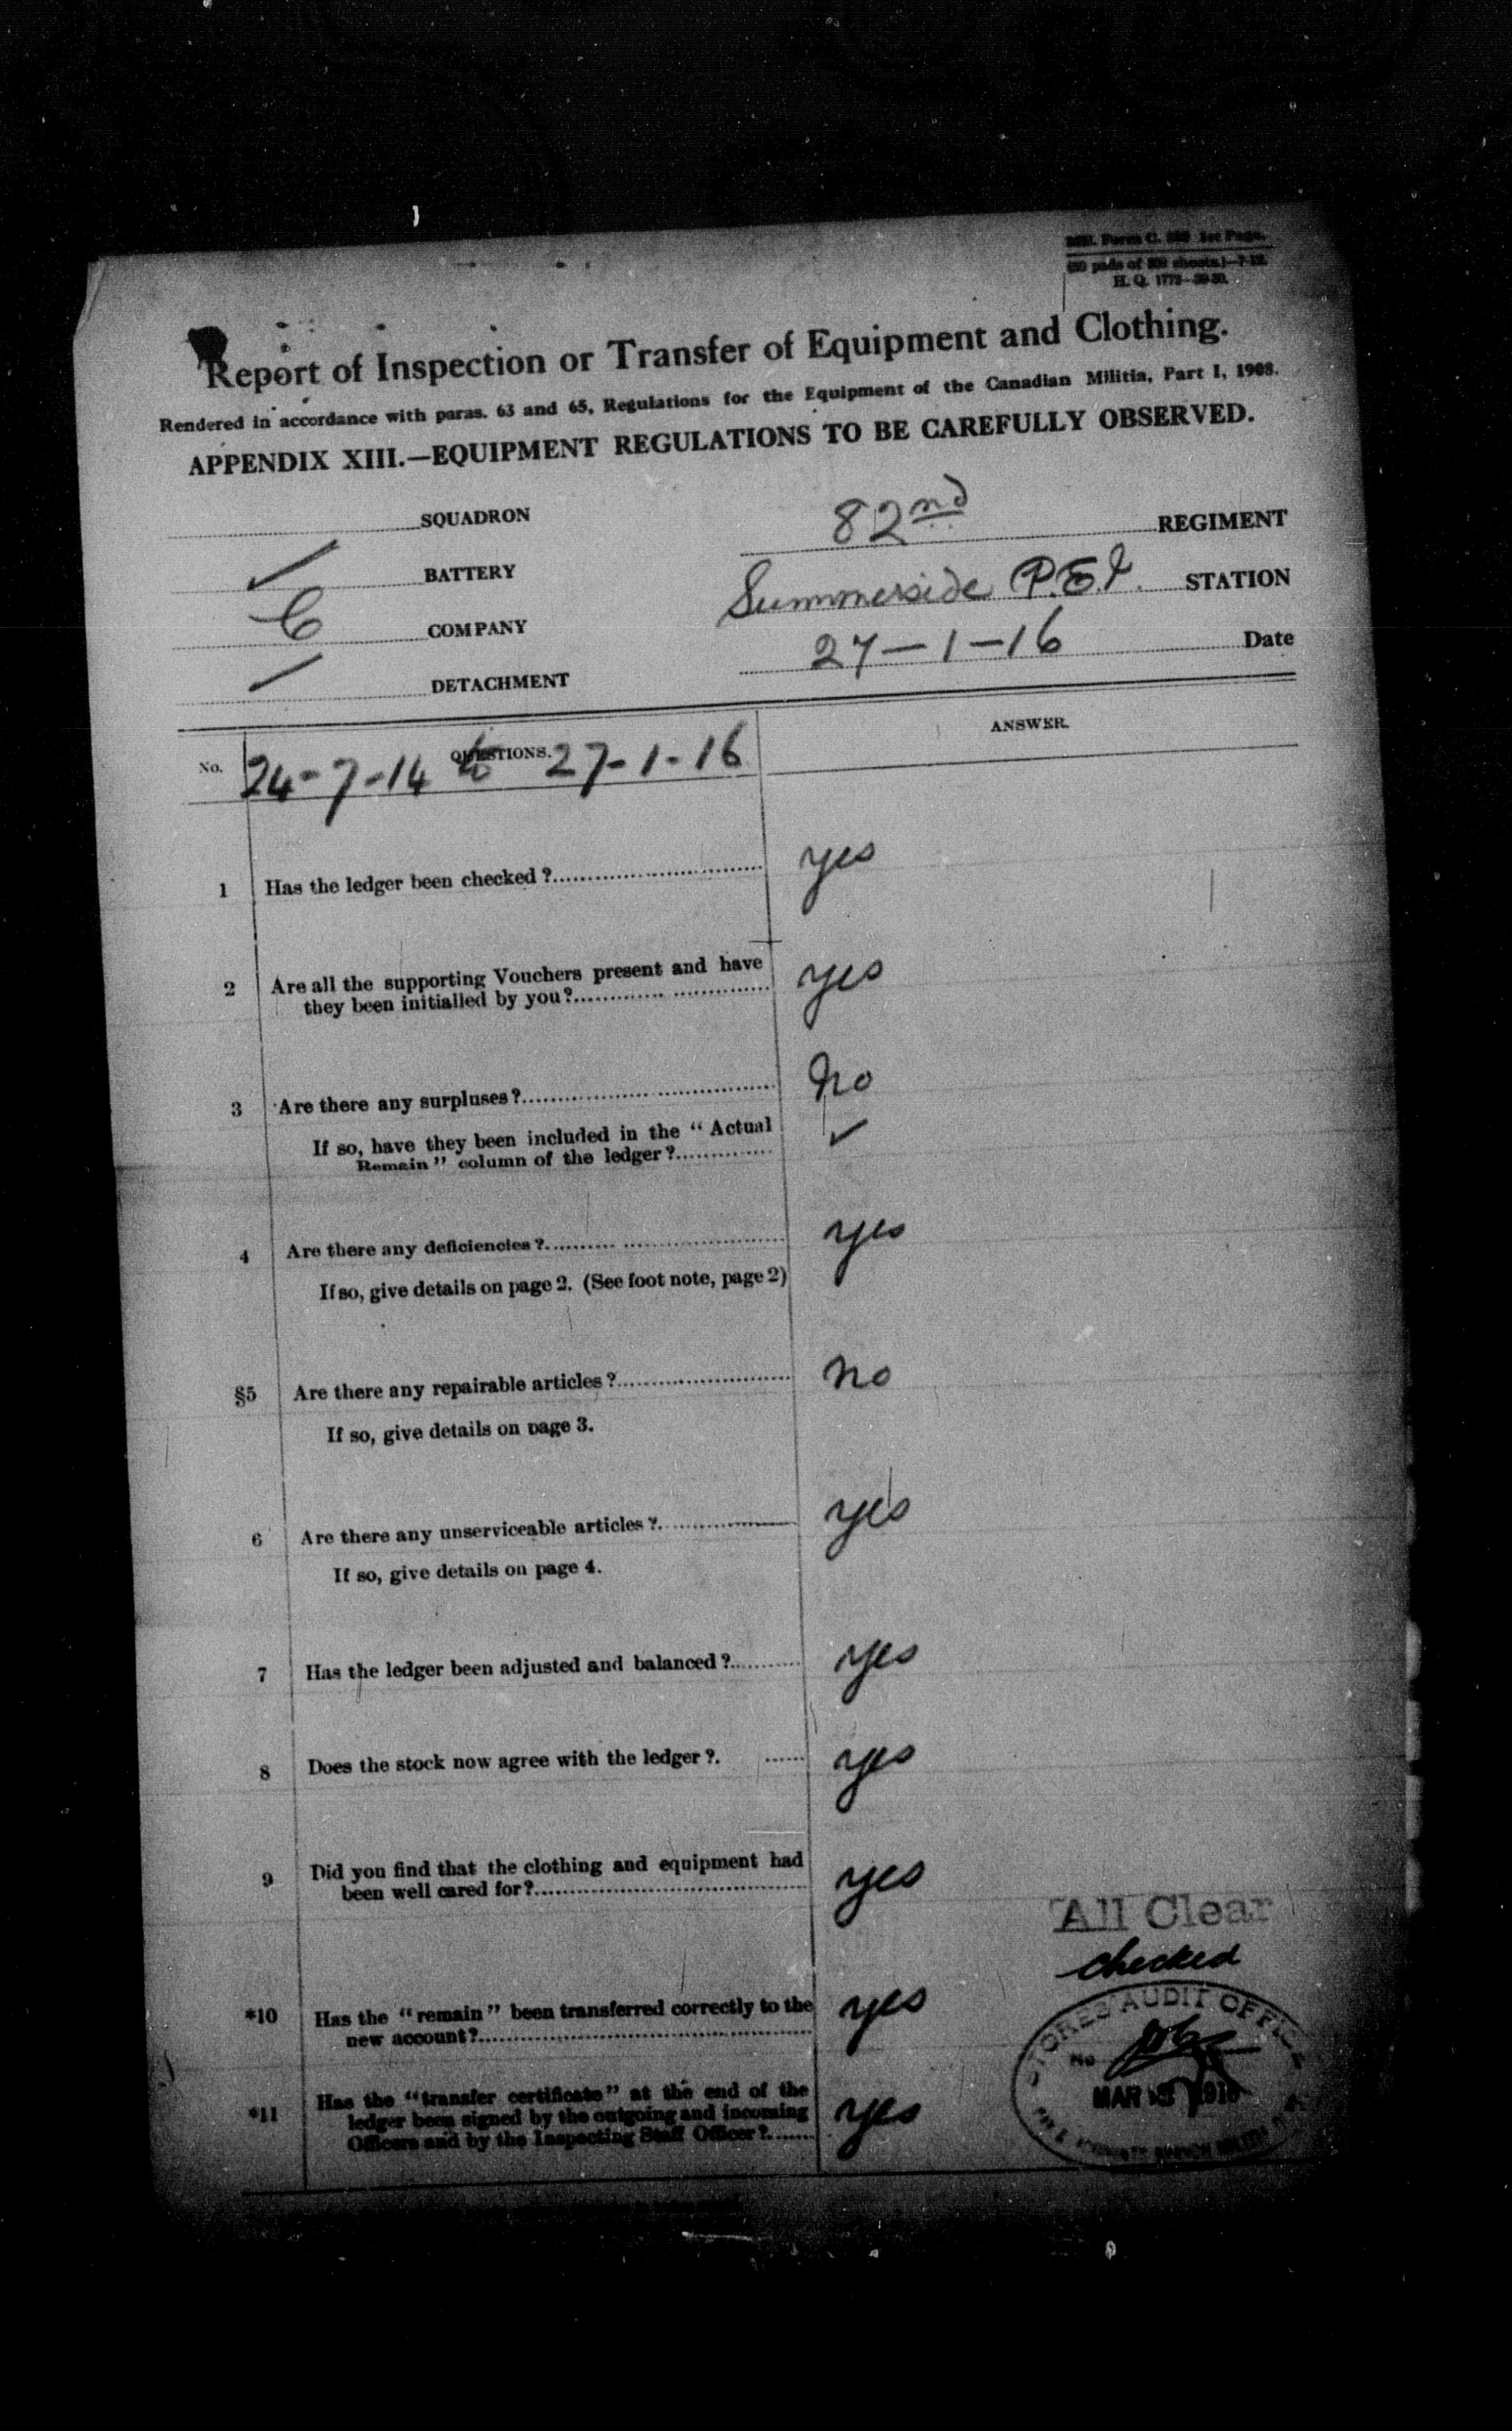 Mil. Form C. 1st Page.
H. Q. 1772—39-30.
Report of Inspection or Transfer of Equipment and Clothing.
Rendered in accordance with paras. 63 and 65, Regulations for the Equipment of the Canadian Militia, Part I, 1908.
APPENDIX XIII.—EQUIPMENT REGULATIONS TO BE CAREFULLY OBSERVED.
SQUADRON
82nd REGIMENT
BATTERY
Summerside P.E.I. STATION
C COMPANY
27-1-16 Date
DETACHMENT
No. QUESTIONS. ANSWER.
24-7-14 to 27-1-16
1 Has the ledger been checked? yes
2 Are all the supporting Vouchers present and have
they been initialled by you? yes
3 Are there any surpluses? No
If so, have they been included in the "Actual
Remain" column of the ledger? ✓
4 Are there any deficiencies? yes
If so, give details on page 2. (See foot note, page 2)
§5 Are there any repairable articles? no
If so, give details on page 3.
6 Are there any unserviceable articles? yes
If so, give details on page 4.
7 Has the ledger been adjusted and balanced? yes
8 Does the stock now agree with the ledger? yes
9 Did you find that the clothing and equipment had
been well cared for? yes
All Clear
checked
*10 Has the "remain" been transferred correctly to the
new account? yes
STORES AUDIT OFFICE
No
MAR 1916
*11 Has the "transfer certificate" at the end of the
ledger been signed by the outgoing and incoming
Officers and by the Inspecting Staff Officer? yes